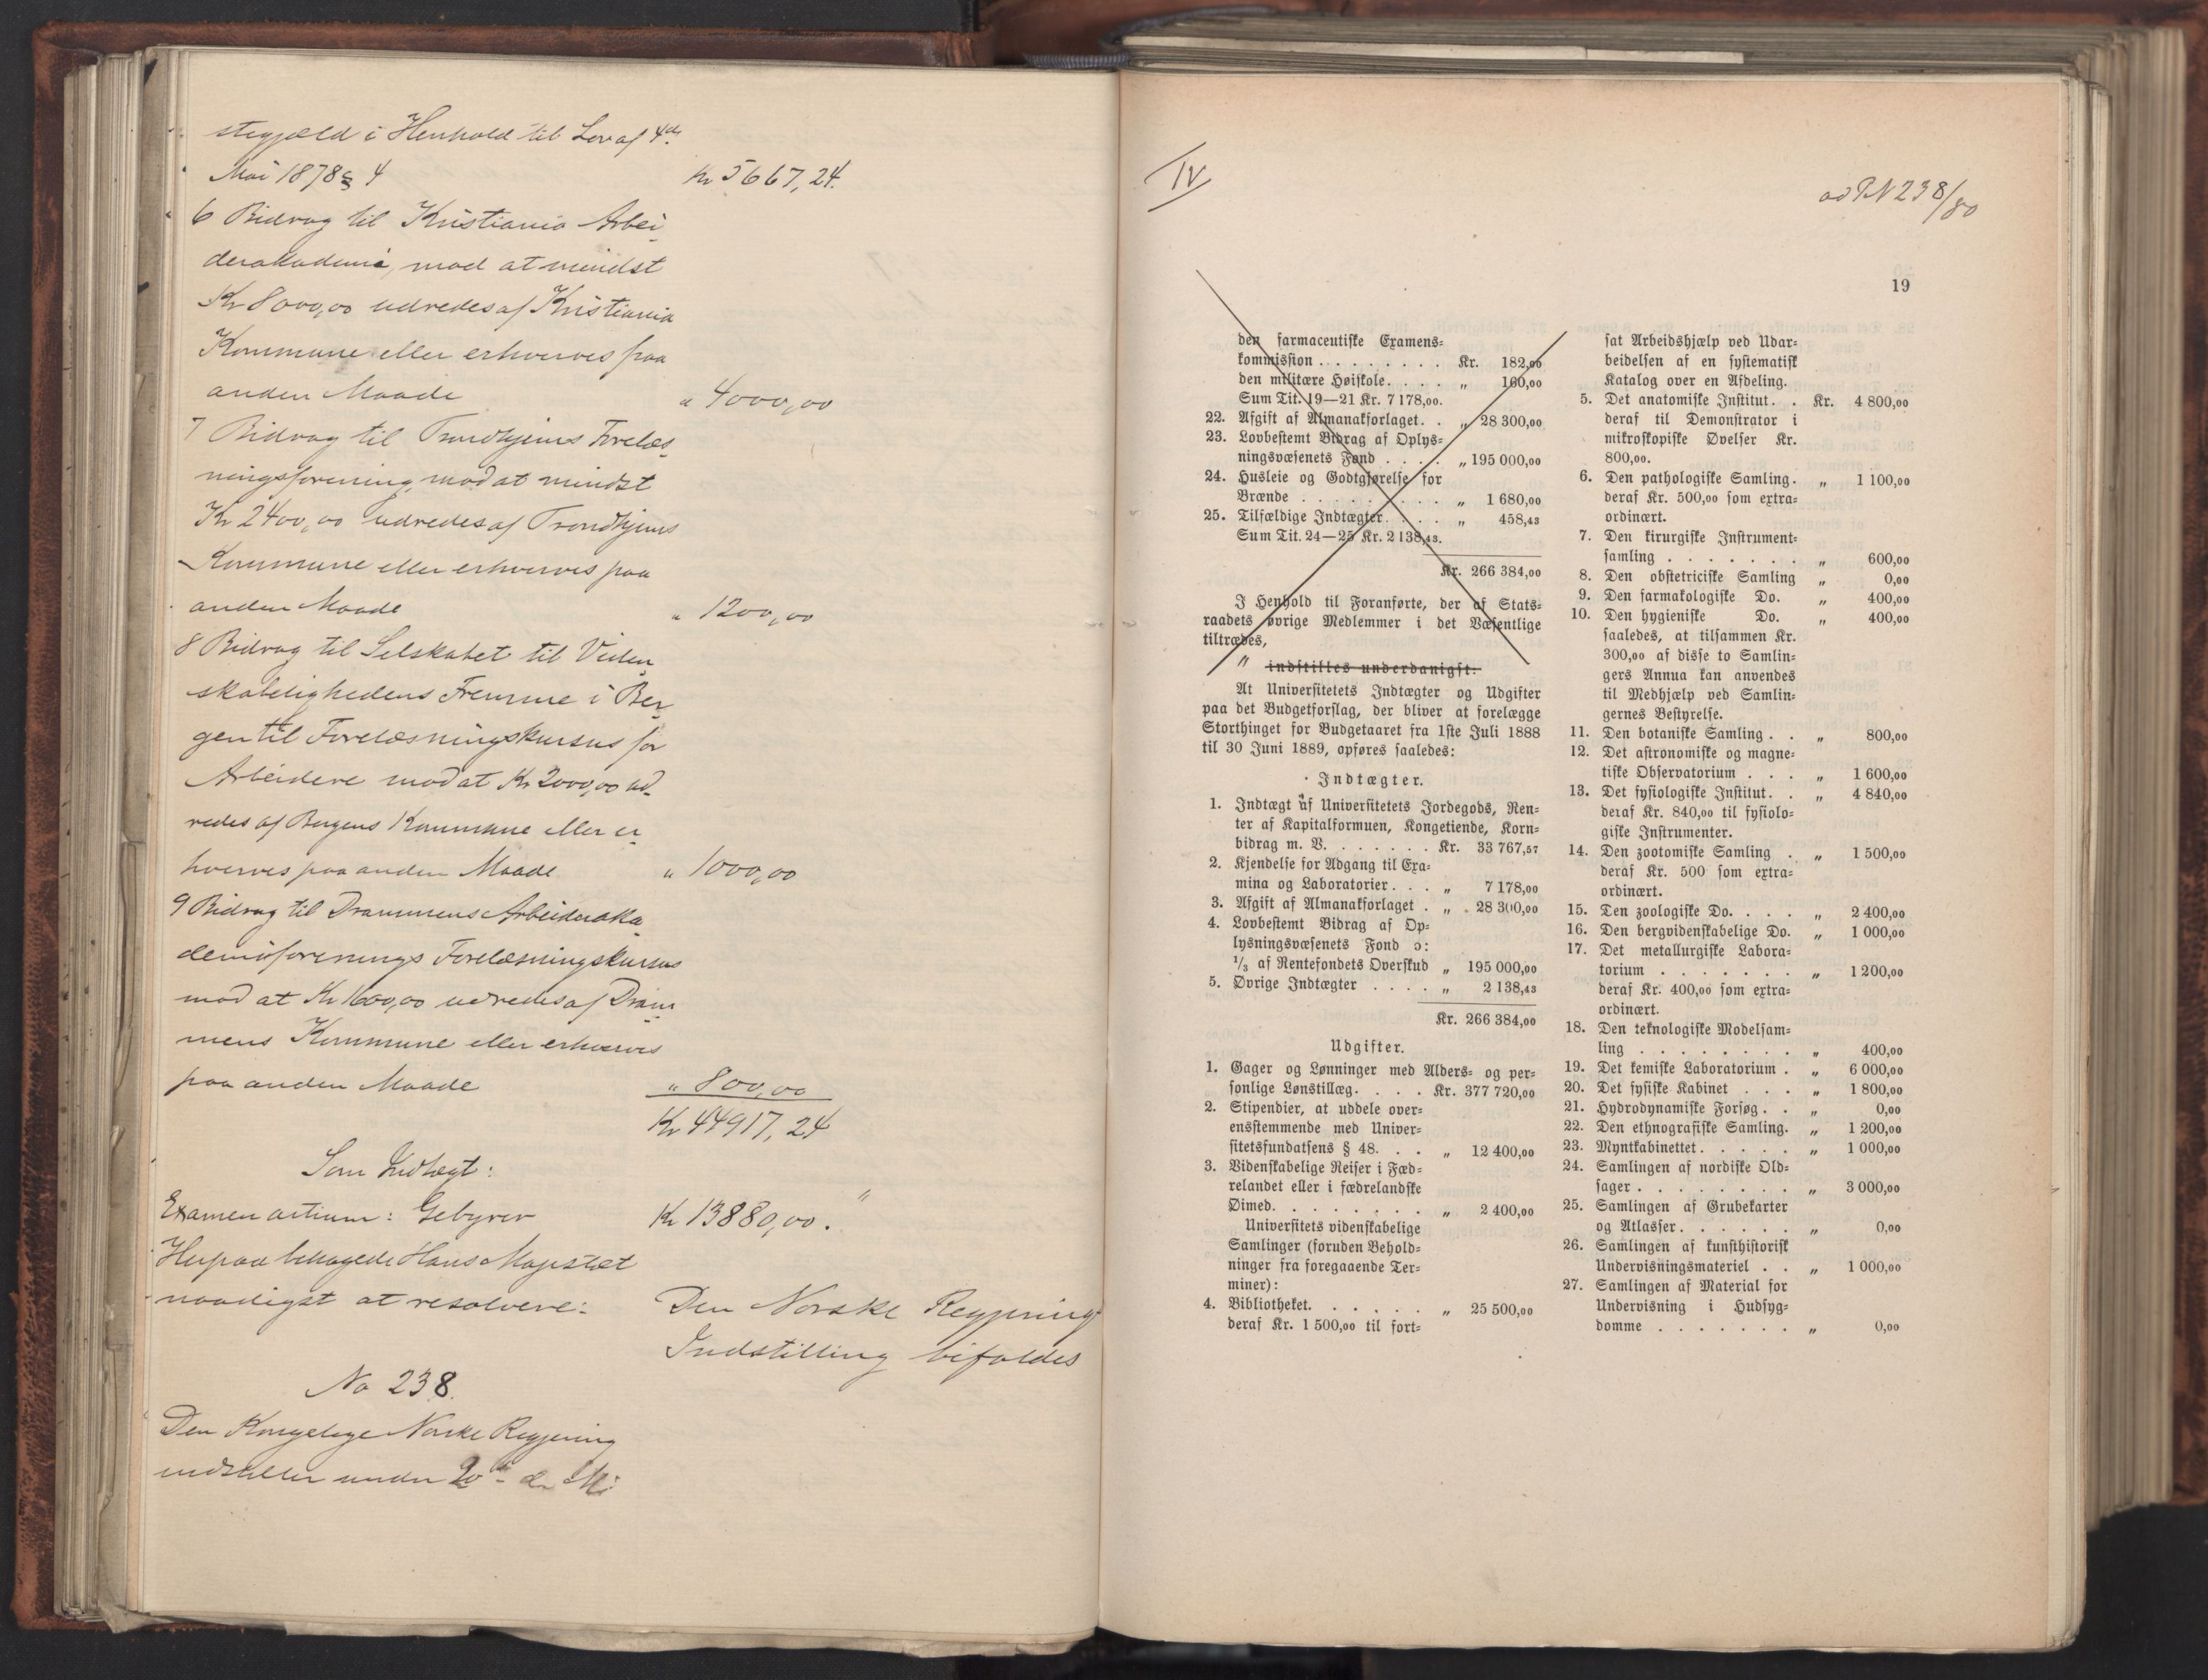 stegjæld i Henhold til Lov af 4de
Mai 1878 § 4 Kr 5667,24.
6 Bidrag til Kristiania Arbei-
derakademi, mod at mindst
Kr 8000,00 udredes af Kristiania
Kommune eller erhverves paa
anden Maade " 4000,00
7 Bidrag til Trondhjems Forelæs-
ningsforening, mod at mindst
Kr 2400,00 udredes af Trondhjems
Kommune eller erhverves paa
anden Maade " 1200,00
8 Bidrag til Selskabet til Viden-
skabelighedens Fremme i Ber-
gen til Forelæsningskursus for
Arbeidere mod at Kr 2000,00 ud-
redes af Bergens Kommune eller er-
hverves paa anden Maade " 1000,00
9 Bidrag til Drammens Arbeideraka-
demiforenings Forelæsningskursus
mod at Kr 1600,00 udredes af Dram-
mens Kommune eller erhverves
paa anden Maade " 800,00
Kr 44917,24
Som Indtægt:
Examen artium: Gebyrer Kr 13880,00. "
Herpaa behagede Hans Majestæt
naadigst at resolvere: Den Norske Regjerings
Indstilling bifaldes
No 238.
Den Kongelige Norske Regjering
indstiller under 20de ds
IV
ad PN 238/80
19
den farmaceutiske Examens-
kommission . . . . . . . . Kr. 182,00
den militære Høiskole. . . . „ 160,00
Sum Tit. 19—21 Kr. 7 178,00.
22. Afgift af Almanakforlaget. . „ 28 300,00
23. Lovbestemt Bidrag af Oplys-
ningsvæsenets Fond . . . . „ 195 000,00
24. Husleie og Godtgjørelse for
Brænde . . . . . . . . . „ 1 680,00
25. Tilfældige Indtægter. . . . „ 458,43
Sum Tit. 24—25 Kr. 2 138,43.
Kr. 266 384,00
I Henhold til Foranførte, der af Stats-
raadets øvrige Medlemmer i det Væsentlige
tiltrædes,
" indstilles underdanigst:
At Universitetets Indtægter og Udgifter
paa det Budgetforslag, der bliver at forelægge
Storthinget for Budgetaaret fra 1ste Juli 1888
til 30 Juni 1889, opføres saaledes:
Indtægter.
1. Indtægt af Universitetets Jordegods, Ren-
ter af Kapitalformuen, Kongetiende, Korn-
bidrag m. V. . . . . . . Kr. 33 767,57
2. Kjendelse for Adgang til Exa-
mina og Laboratorier. . . „ 7 178,00
3. Afgift af Almanakforlaget . „ 28 300,00
4. Lovbestemt Bidrag af Op-
lysningsvæsenets Fond ɔ:
1/3 af Rentefondets Overskud „ 195 000,00
5. Øvrige Indtægter . . . . „ 2 138,43
Kr. 266 384,00
Udgifter.
1. Gager og Lønninger med Alders- og per-
sonlige Lønstillæg. . . . Kr. 377 720,00
2. Stipendier, at uddele over-
ensstemmende med Univer-
sitetsfundatsens § 48. . . „ 12 400,00
3. Videnskabelige Reiser i Fæd-
relandet eller i fædrelandske
Øimed. . . . . . . . „ 2 400,00
Universitets videnskabelige
Samlinger (foruden Behold-
ninger fra foregaaende Ter-
miner):
4. Bibliotheket. . . . . . „ 25 500,00
deraf Kr. 1 500,00 til fort-
sat Arbeidshjælp ved Udar-
beidelsen af en systematisk
Katalog over en Afdeling.
5. Det anatomiske Institut. . Kr. 4 800,00
deraf til Demonstrator i
mikroskopiske Øvelser Kr.
800,00.
6. Den pathologiske Samling. „ 1 100,00
deraf Kr. 500,00 som extra-
ordinært.
7. Den kirurgiske Instrument-
samling . . . . . . . „ 600,00
8. Den obstetriciske Samling „ 0,00
9. Den farmakologiske Do. „ 400,00
10. Den hygieniske Do. „ 400,00
saaledes, at tilsammen Kr.
300,00 af disse to Samlin-
gers Annua kan anvendes
til Medhjælp ved Samlin-
gernes Bestyrelse.
11. Den botaniske Samling . . „ 800,00
12. Det astronomiske og magne-
tiske Observatorium . . . „ 1 600,00
13. Det fysiologiske Institut. . „ 4 840,00
deraf Kr. 840,00 til fysiolo-
giske Instrumenter.
14. Den zootomiske Samling . „ 1 500,00
deraf Kr. 500 som extra-
ordinært.
15. Den zoologiske Do. . . . „ 2 400,00
16. Den bergvidenskabelige Do. „ 1 000,00
17. Det metallurgiske Labora-
torium . . . . . . . „ 1 200,00
deraf Kr. 400,00 som extra-
ordinært.
18. Den teknologiske Modelsam-
ling . . . . . . . . „ 400,00
19. Det kemiske Laboratorium . „ 6 000,00
20. Det fysiske Kabinet . . . „ 1 800,00
21. Hydrodynamiske Forsøg. . „ 0,00
22. Den ethnografiske Samling. „ 1 200,00
23. Myntkabinettet . . . . . „ 1 000,00
24. Samlingen af nordiske Old-
sager . . . . . . . . „ 3 000,00
25. Samlingen af Grubekarter
og Atlasser. . . . . . „ 0,00
26. Samlingen af kunsthistorisk
Undervisningsmateriel . . „ 1 000,00
27. Samlingen af Material for
Undervisning i Hudsyg-
domme . . . . . . . „ 0,00